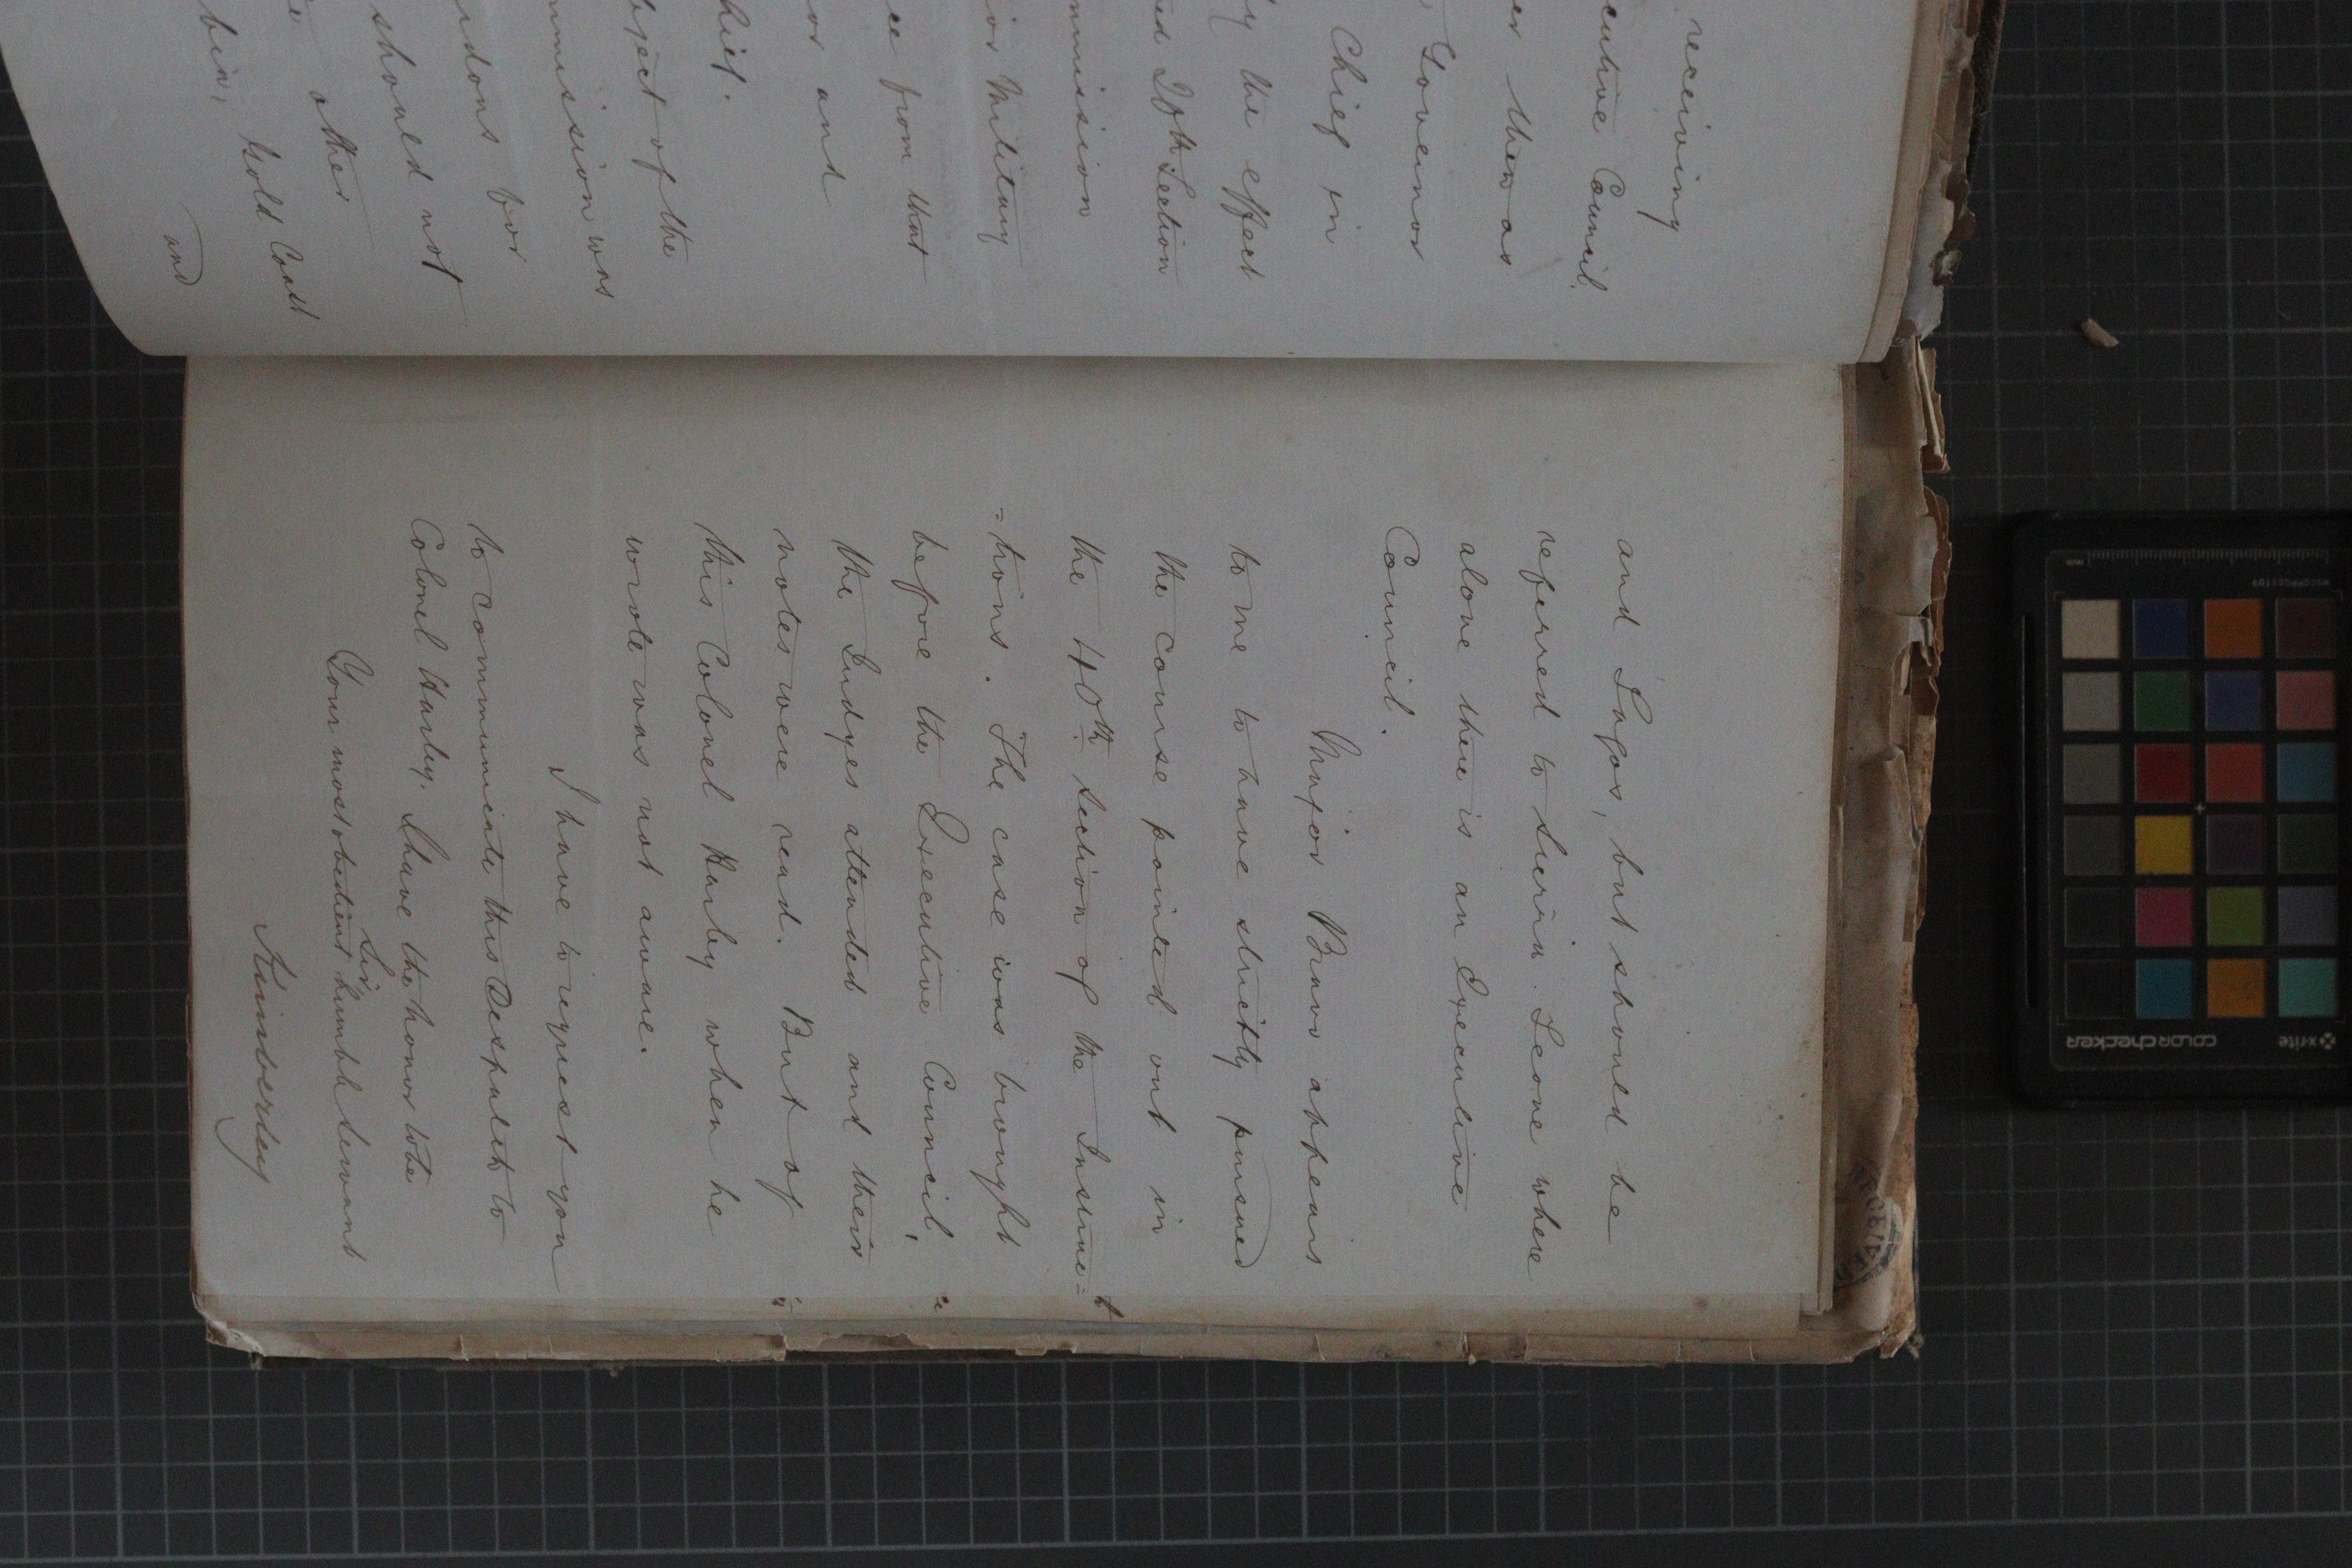 receiving
cutive Council.
er then as
Governor
Chief in
y the effect
nd 27th Section
mmission
ior Military
ce from that
or and
hief.
bject of the
mmission was
rdons for
should not
other
bia, Gold Coast
and
and Lagos, but should be
referred to Sierra Leone where
alone there is an Executive
Council.
Major Bravo appears
to me to have strictly pursued
the course pointed out in
the 40th Section of the Instruc=
=tions. The case was brought
before the Executive Council,
the Judges attended and their
notes were read. But of
this Colonel Harley when he
wrote was not aware.
I have to request you
to communicate this Despatch to
Colonel Harley. I have the honor to be
Sir,
Your most obedient humble Servant
Kimberley
x-rite
colorchecker
MSCCPPCC1109
mm